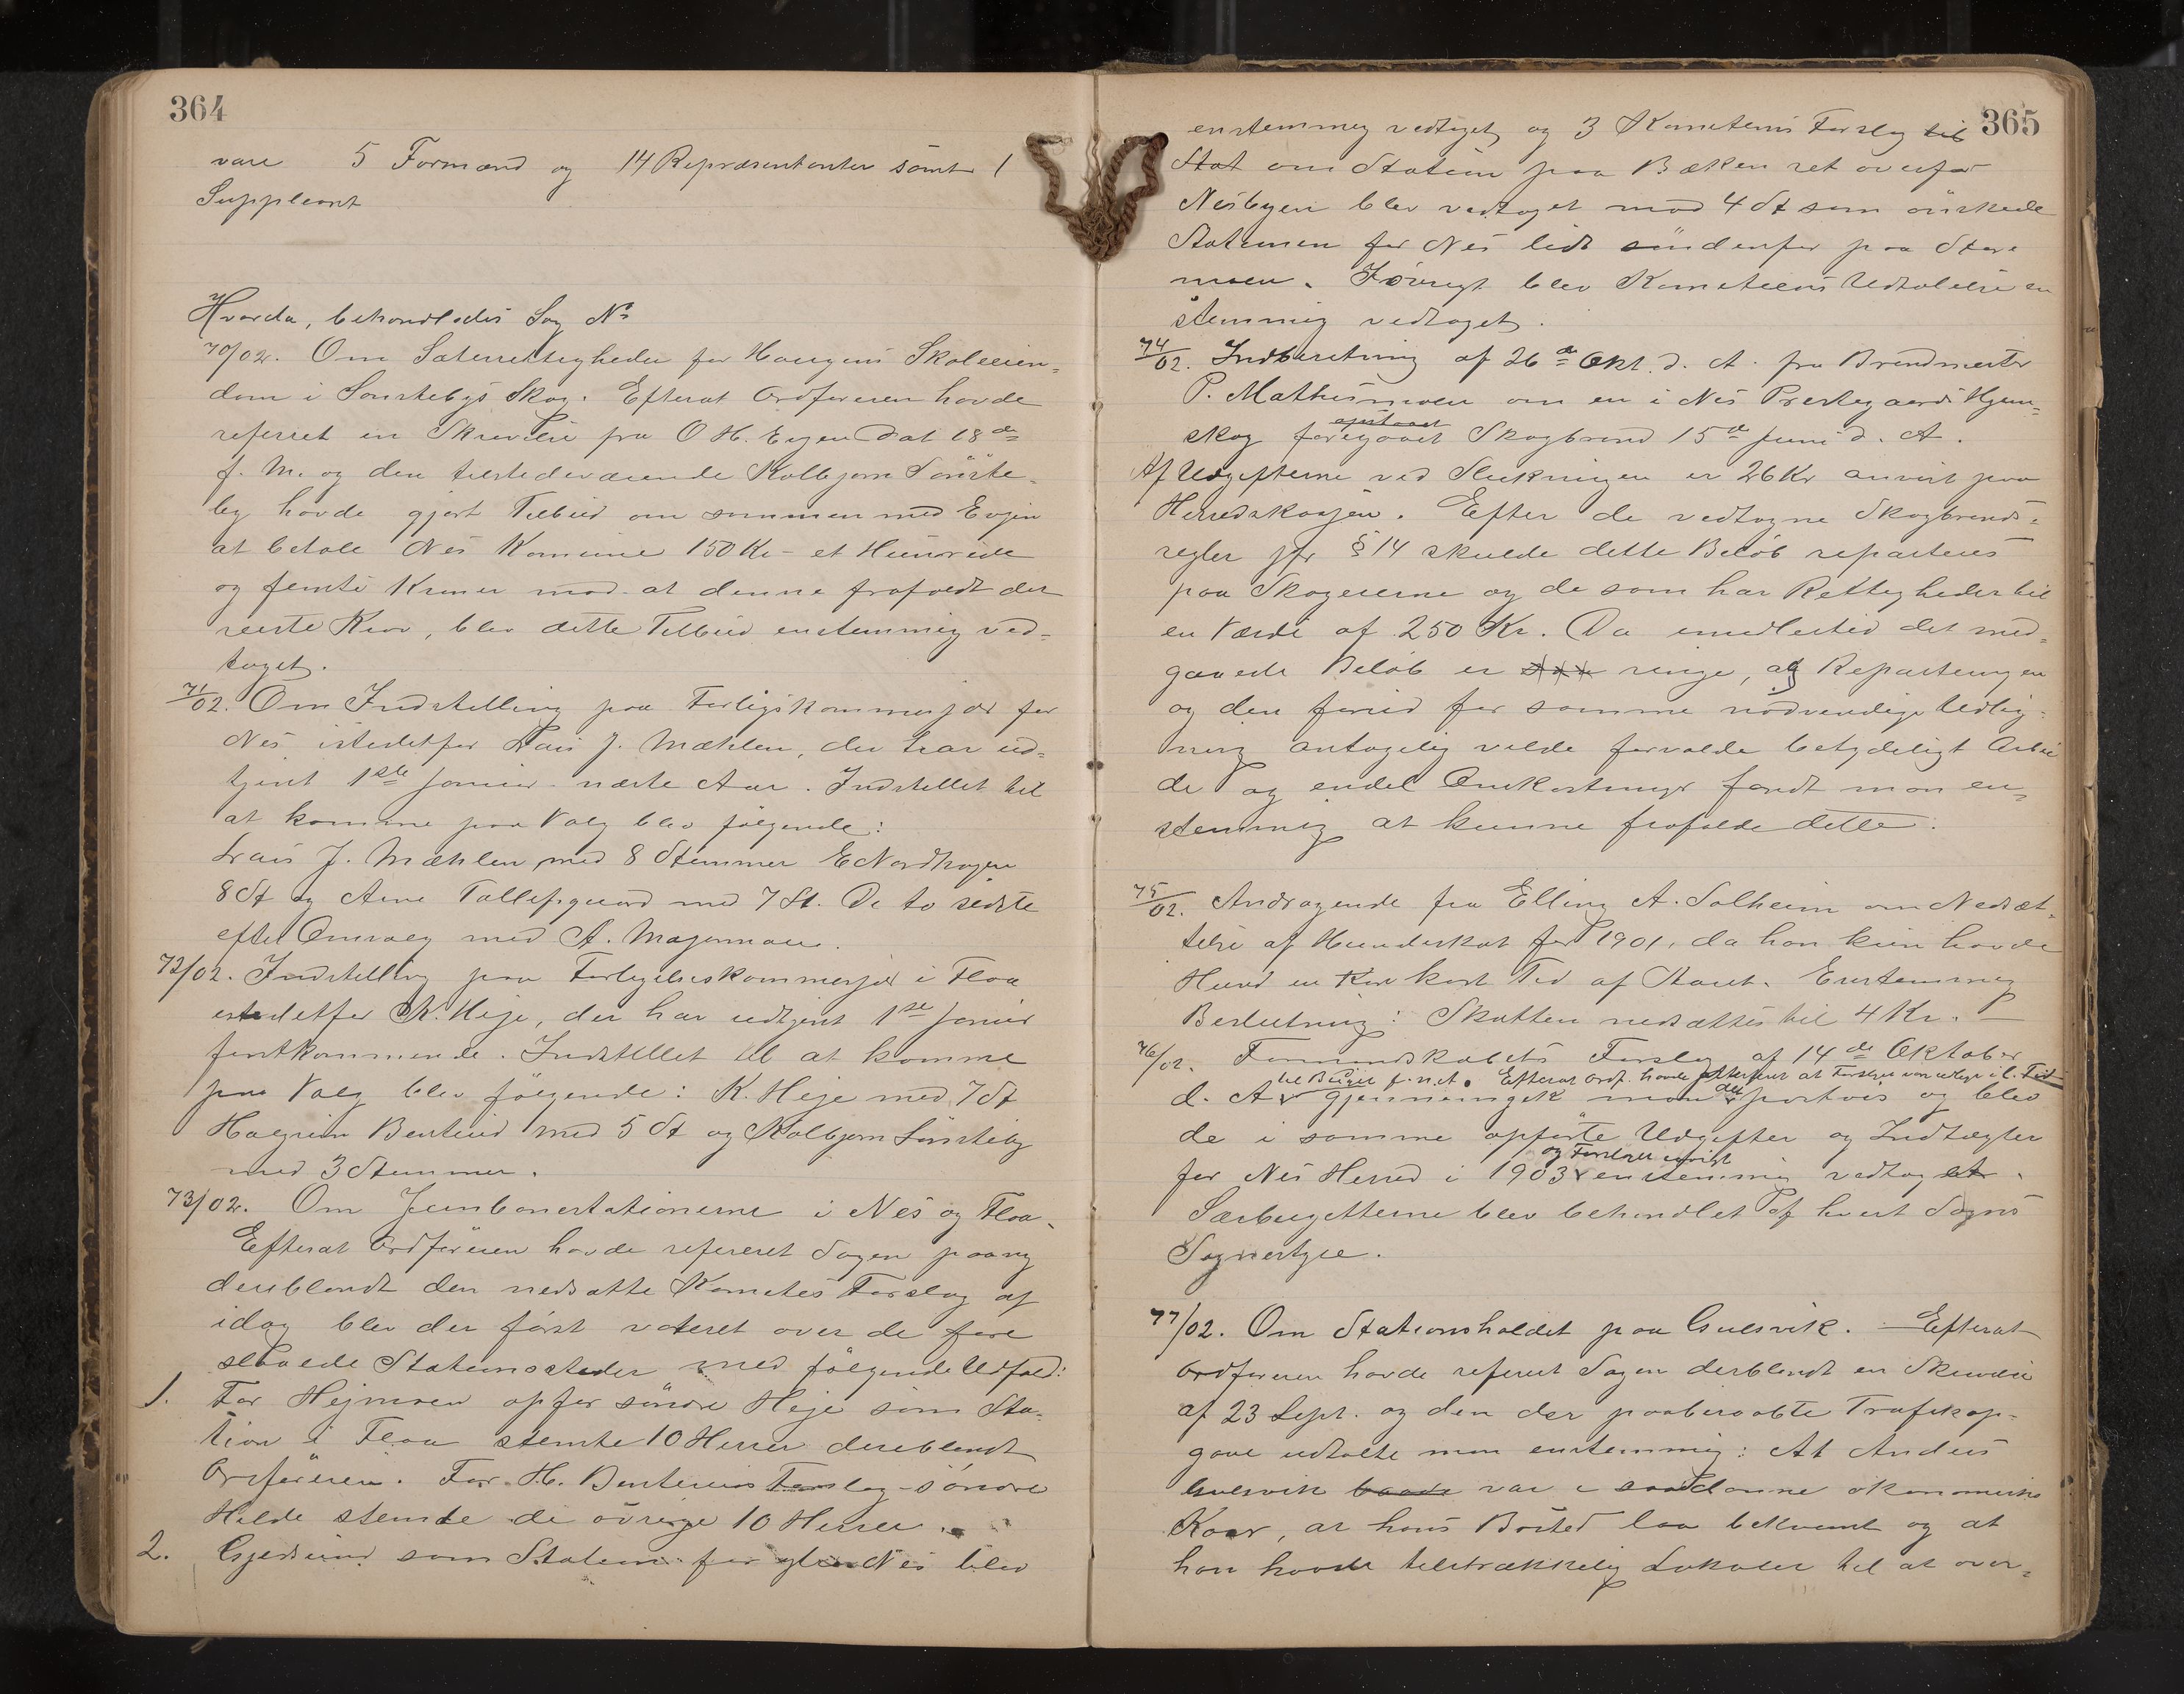 364
vare 5 Formænd og 14 Repræsentanter samt 1
Suppleant
Hvorda, behandledes Sag No
70/02. Om Sæterrettigheder for Haugens Skoleeien-
dom i Sønstebys Skog. Efterat Ordføreren havde
referert en Skrivelse fra O H. Evjen Dat 18de
f. M. og den tilstedeværende Kolbjørn Sønste-
by havde gjort Tilbud om sammen med Evjen
at betale Nes Komune 150 Kr - et Hundrede
og femti Kroner mod at denne frafaldt der
reiste Krav, blev dette Tilbud enstemmig ved-
taget.
71/02. Om Indstilling paa Forligskommisjær for
Nes istedetfor Lars J. Mæhlen, der har ud-
tjent 1ste Januar næste Aar. Indstillet til
at komme paa Valg blev følgende:
Lars J. Mæhlen med 8 Stemmer E Nordhagen
8 St og Arne Tollefsgaard med 7 St. De to sidste
efter Omvalg med A. Magerman.
72/02. Indstilling paa Forligelseskommisjær i Flaa
istedetfor K. Heje, der har udtjent 1ste Januar
førstkommende. Indstillet til at komme
paa Valg blev følgende: K. Heje med 7 St
Halgrim Benterud med 5 St og Kolbjørn Sønsteby
med 3 Stemmer.
73/02. Om Jernbanestationerne i Nes og Flaa.
Efterat Ordføreren havde refereret Sagen paany
deriblandt den nedsatte Komites Forslag af
idag blev der først voteret over de fore
slaaede Stationssteder med følgende Udfald:
1. For Hejmoen opfor søndre Heje som Sta-
tion i Flaa stemte 10 Herrer deriblandt
Ordføreren. For H. Benteruds Forslag - søndre
Hilde stemte de øvrige 10 Herrer.
2. Gjedsund som Station for ytre Nes blev
365
enstemmig vedtaget og 3 Komiteens Forslag til
Stat om Station paa Bæken ret overfor
Nesbyen blev vedtaget mod 4 St som ønskede
Stationen for Nes lidt søndenfor paa Store
moen. Forøvrigt blev Komiteens Udtalelse en
stemmig vedtaget.
74/02. Indberetning af 26de Okt. d. A. fra Brandmester
P. Mathismoen om en i Nes Prestegaards Hjem-
opstaaet
skog foregaaet Skogbrand 15de Juni d. A.
Af Udgifterne ved Slukningen er 26 Kr anvist paa
Herredskassen. Efter de vedtagne Skogbrands-
regler jfr § 14 skulde dette Beløb reparteres
paa Skogeierne og de som har Rettigheder til
en Værdi af 250 Kr. Da imidlertid det med-
gaaede Beløb er ringe, og Reparteringen
og den forud for samme nødvendige Udlig-
ning antagelig vilde forvolde betydeligt Arbei
de og endel Omkostninger fandt man en-
stemmig at kunne frafalde dette.
75/02. Andragende fra Elling A. Solheim om Nedsæt-
telse af Hundeskat for 1901, da han kun havde
Hund en kort Tid af Aaret. Enstemmig
Beslutning: Skatten nedsættes til 4 Kr. —
76/02. Formandskabets Forslag af 14de Oktober
til Budget f. n. A. Efterat Ordf. havde refereret at Forslaget var udlagt i l. Tid
d. A gjennemgik man det postvis og blev
de i samme opførte Udgifter og Indtægter
og Forslaget øvrigt
for Nes Herred i 1903 enstemmig vedtaget.
Særbugetterne blev behandlet af hvert Sogns
Sognestyre.
77/02. Om Stationsholdet paa Gulsvik. — Efterat
Ordføreren havde referert Sagen deriblandt en Skrivelse
af 23 Sept. og den der paaberaabte Trafikop-
gave udtalte man enstemmig: At Anders
Gulsvik baade var i saadanne økonomiske
Kaar, at hans Bosted laa bekvemt og at
han havde tilstrækkelig Lokaler til at over-